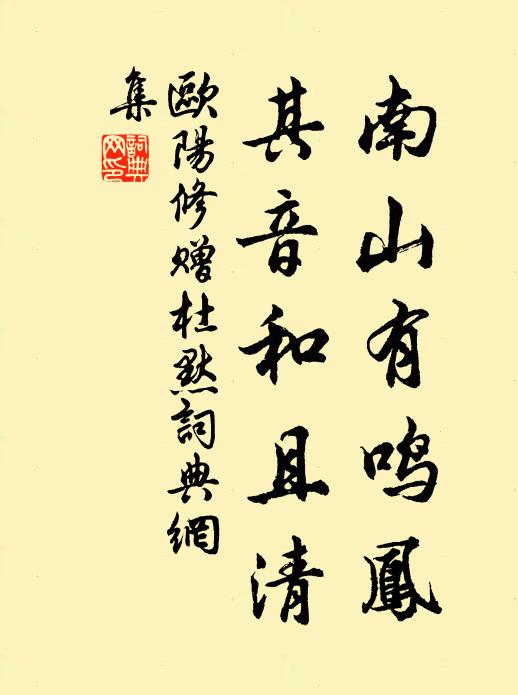 南山有鸣鳳
其音和且清
歐陽修赠杜默詞典網
集
詞典网印